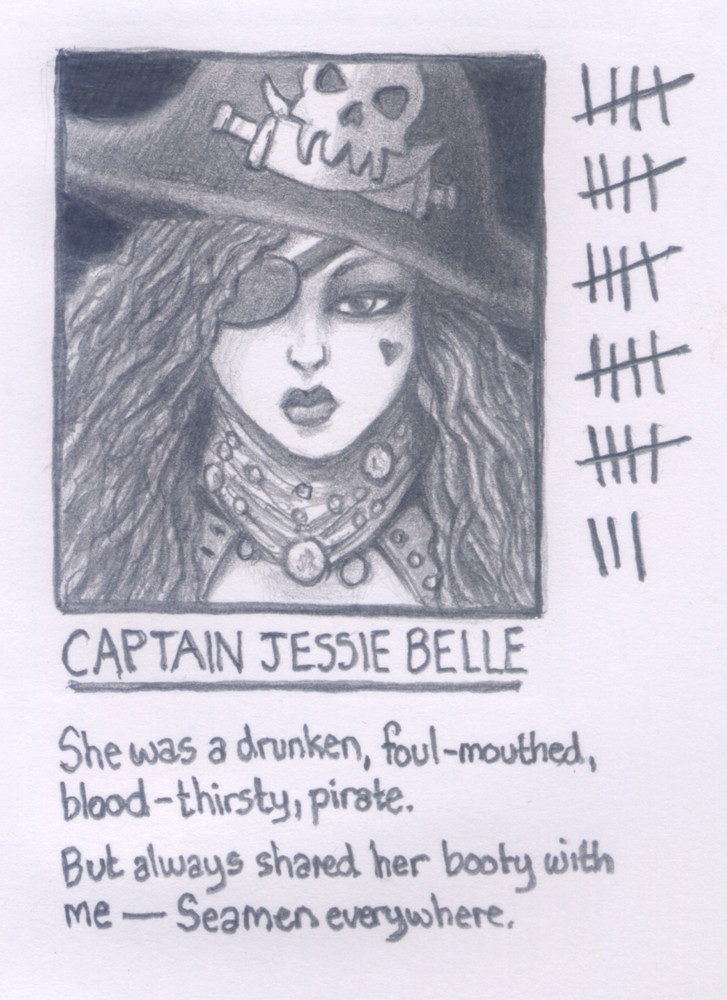 CAPTAIN JESSIE BELLE
She was a drunken, foul-mouthed,
blood-thirsty, pirate.
But always shared her booty with
me — Seamen everywhere.